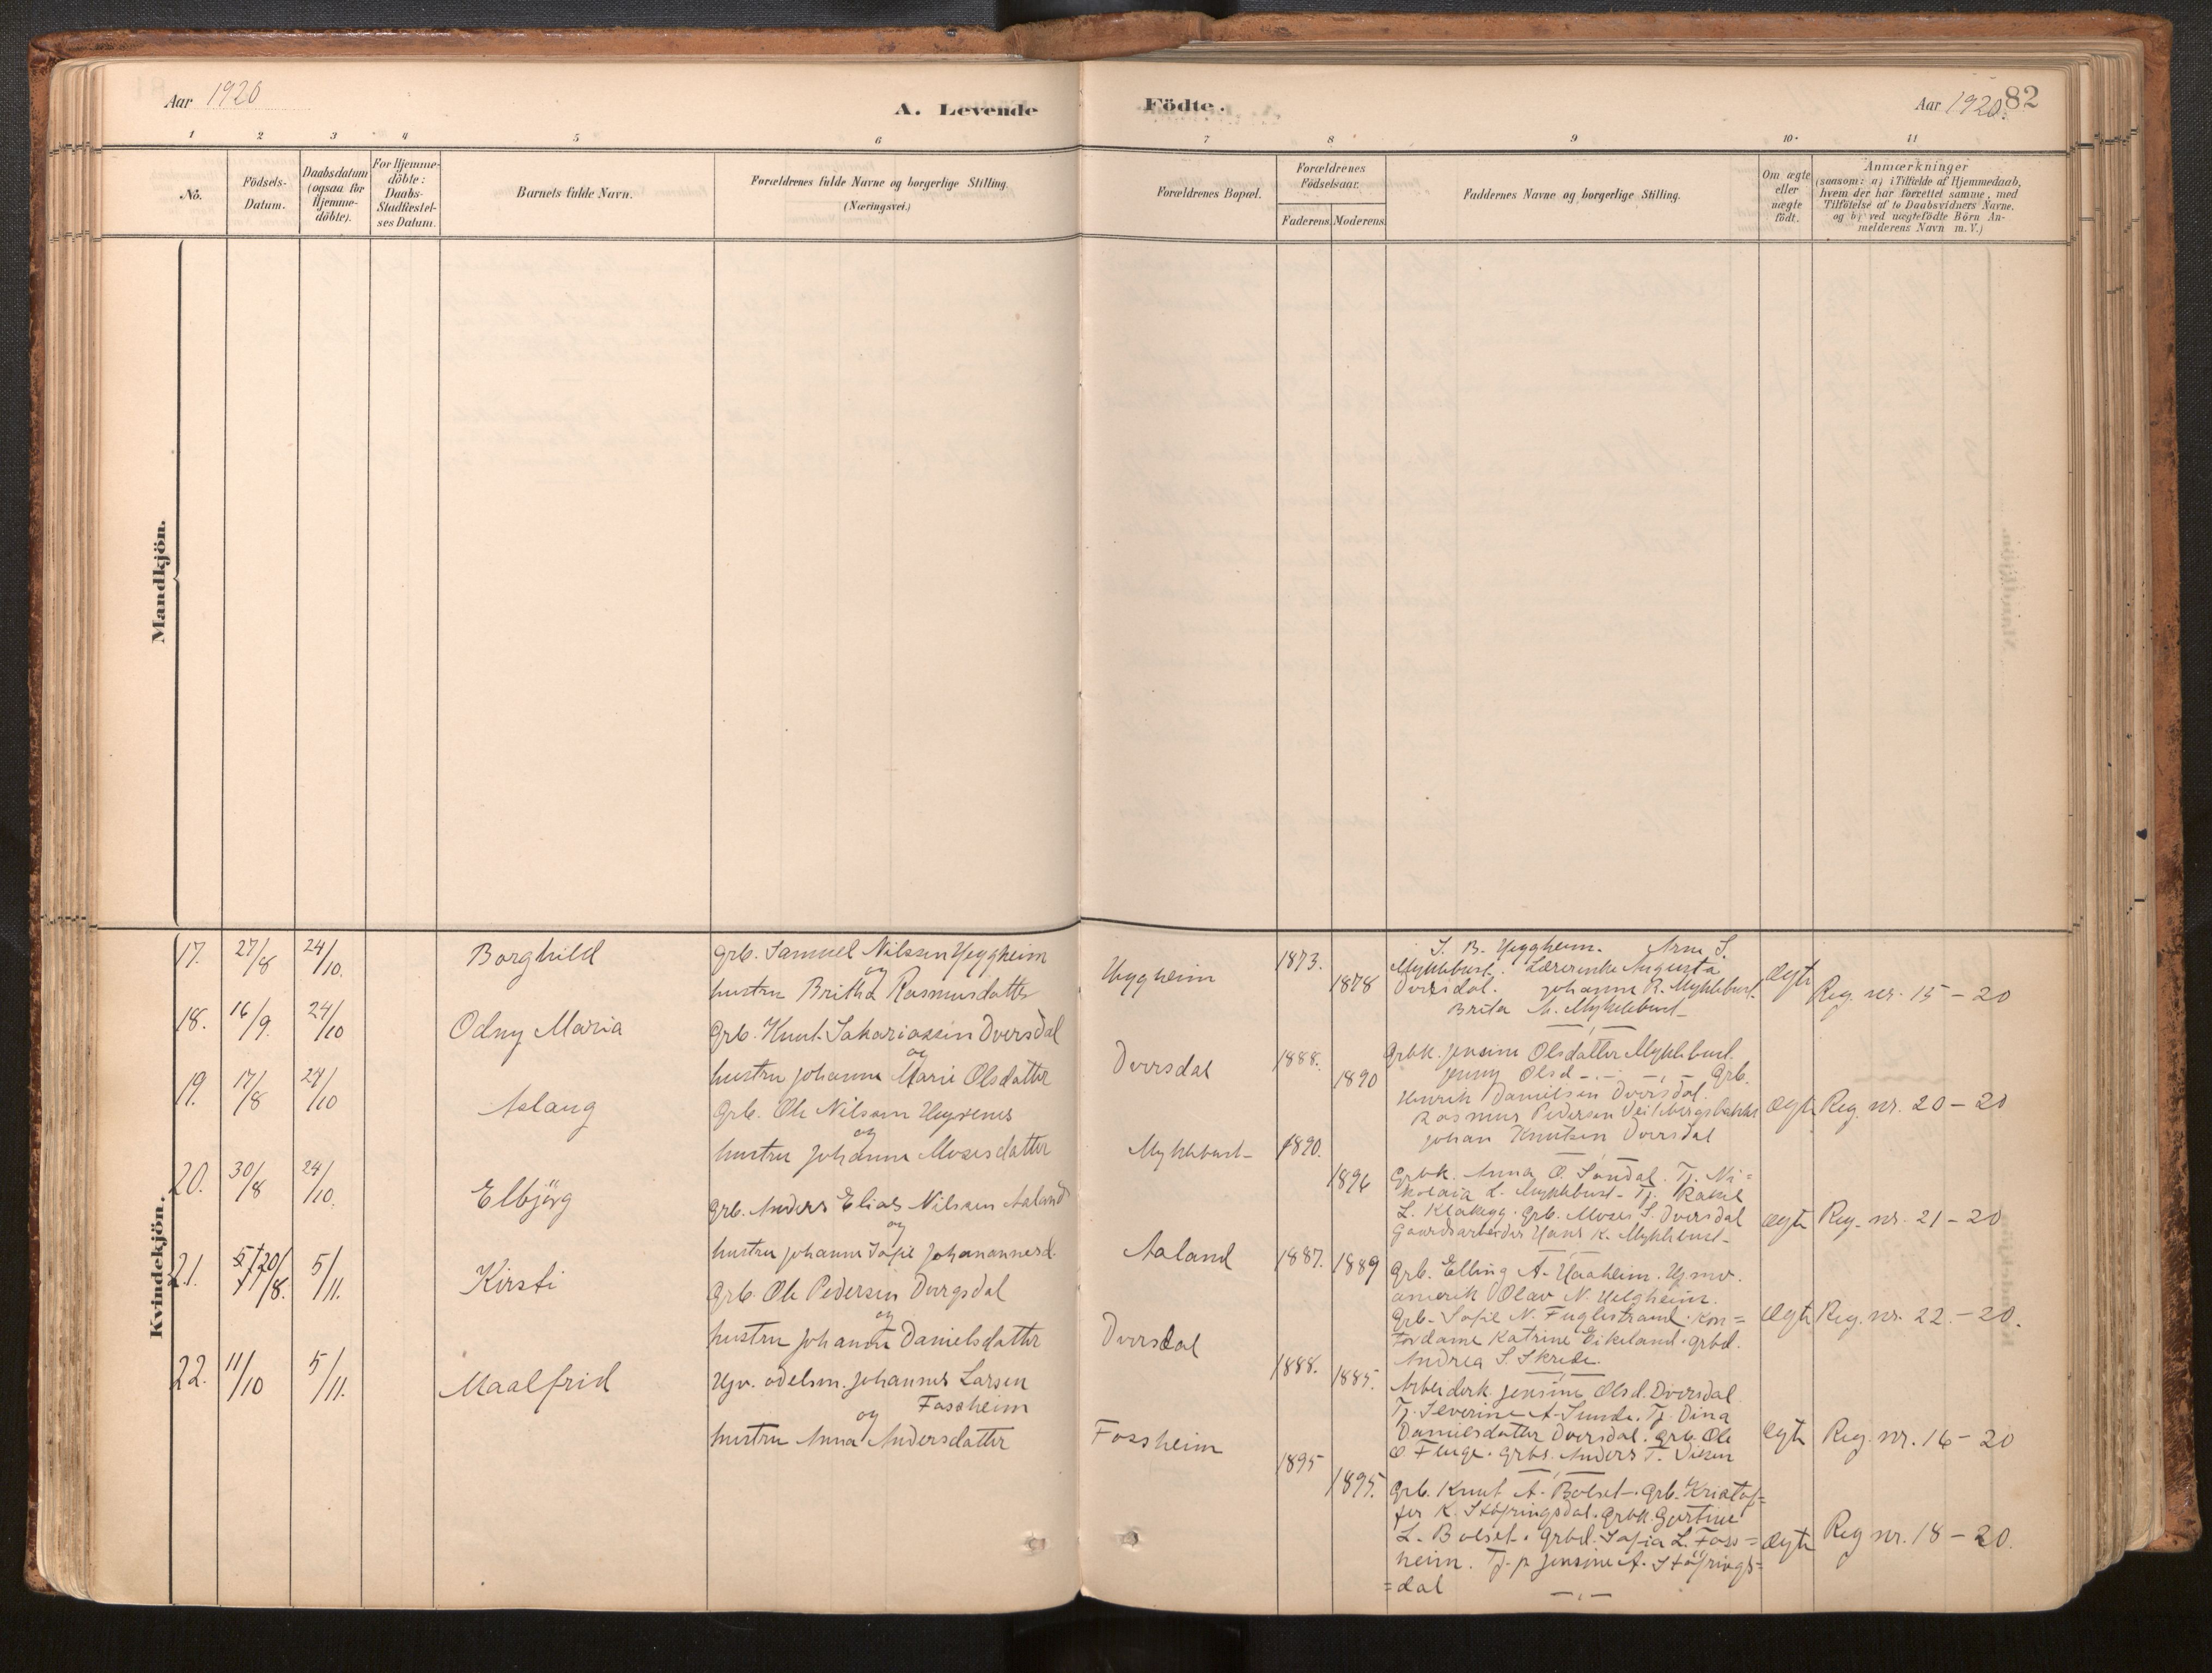 Aar 1920
A. Levende
Födte.
Aar 1920.
82
1 2 3 4 5 6 7 8 9 10. 11
No.
Födsels-
Datum.
Daabsdatum
(ogsaa for
Hjemme-
döbte).
For Hjemme-
döbte:
Daabs-
Stadfæstel-
ses Datum.
Barnets fulde Navn.
Forældrenes fulde Navne og borgerlige Stilling.
(Næringsvei.)
Forældrenes Bopæl.
Forældrenes
Födselsaar.
Faderens.
Moderens.
Faddernes Navne og borgerlige Stilling.
Om ægte
eller
uægte
födt.
Anmærkninger
(saasom: a) i Tilfælde af Hjemmedaab,
hvem der har forrettet samme, med
Tilföielse af to Daabsvidners Navne.
og b) ved uægtefödte Börn An-
melderens Navn m.V.)
Mandkjön.
Kvindekjön.
17. 27/8 24/10. Borghild
grb. Samuel Nilssen Hyggheim
og
hustru Britha Rasmusdatter
Hyggheim
1873.
1878
S. B. Hyggheim. Arne S.
Myklebust. Lærerinke Augusta
Dvergsdal. Johanne R. Myklebust.
Brita M. Myklebust
ægte
Reg. nr. 15 - 20
18. 16/9. 24/10 Odny Maria
Grb. Knut Sakariassen Dversdal
og
hustru Johanne Marie Olsdatter
Dversdal
1888.
1890
Grbk. Jensine Olsdatter Myklebust.
Jenny Olsd - . - - , - Grb.
Henrik Danielsen Dversdal.
Rasmus Pedersen
Johan Knutsen Dversdal
ægte
Reg. nr. 20 - 20
19. 17/8 24/10 Aslaug
Grb. Ole Nilssen Høyrenes
og
hustru Johanne Mosesdatter
Myklebust
1890.
1896
Grbk. Anna O. Sandal. Tj. Ni=
kolaia L. Myklebust - Tj. Rakel
L. Klakegg. Grb. Moses S. Dversdal
Gaardsarbeider Hans K. Myklebust
ægte
Reg. nr. 21 - 20
20. 30/8 24/10. Elbjörg
grb. Anders Elias Nilssen Aaland
og
hustru Johanne Sofie Johannesd.
Aaland
1887.
1889
Grb. Elling A. Aaheim.
amerik Olav N. Helgheim.
Grb. Sofie N. Fuglestrand. Kon=
tordame Katrine Eikeland. grbd.
Andrea S. Skrede.
ægte
Reg. nr. 22. - 20.
21. 20/8. 5/11. Kirsti
Grb. Ole Pedersen Dvergsdal
og
hustru Johanne Danielsdatter
Dversdal
1888.
1885.
Arbeiderk. Jensine Olsd. Dversdal
Tj. Severine A. Sunde. Tj. Dina
Danielsdatter Dversdal. grb. Ole
O. Fluge. grbs. Anders T.
ægte
Reg. nr. 16 - 20
22. 11/10 5/11. Maalfrid
odelsm. Johannes Larsen
Fossheim
og
hustru Anna Andersdatter
Fossheim
1895
1895.
Grb. Knut A. Bolset. Grb. Kristof=
fer K. Støfringsdal. Grbk. Gurtine
L. Bolset. Grbd. Sofia L. Foss=
heim. Tj. p. Jensine A. Støfrings=
=dal
ægte
Reg nr. 18 - 20.